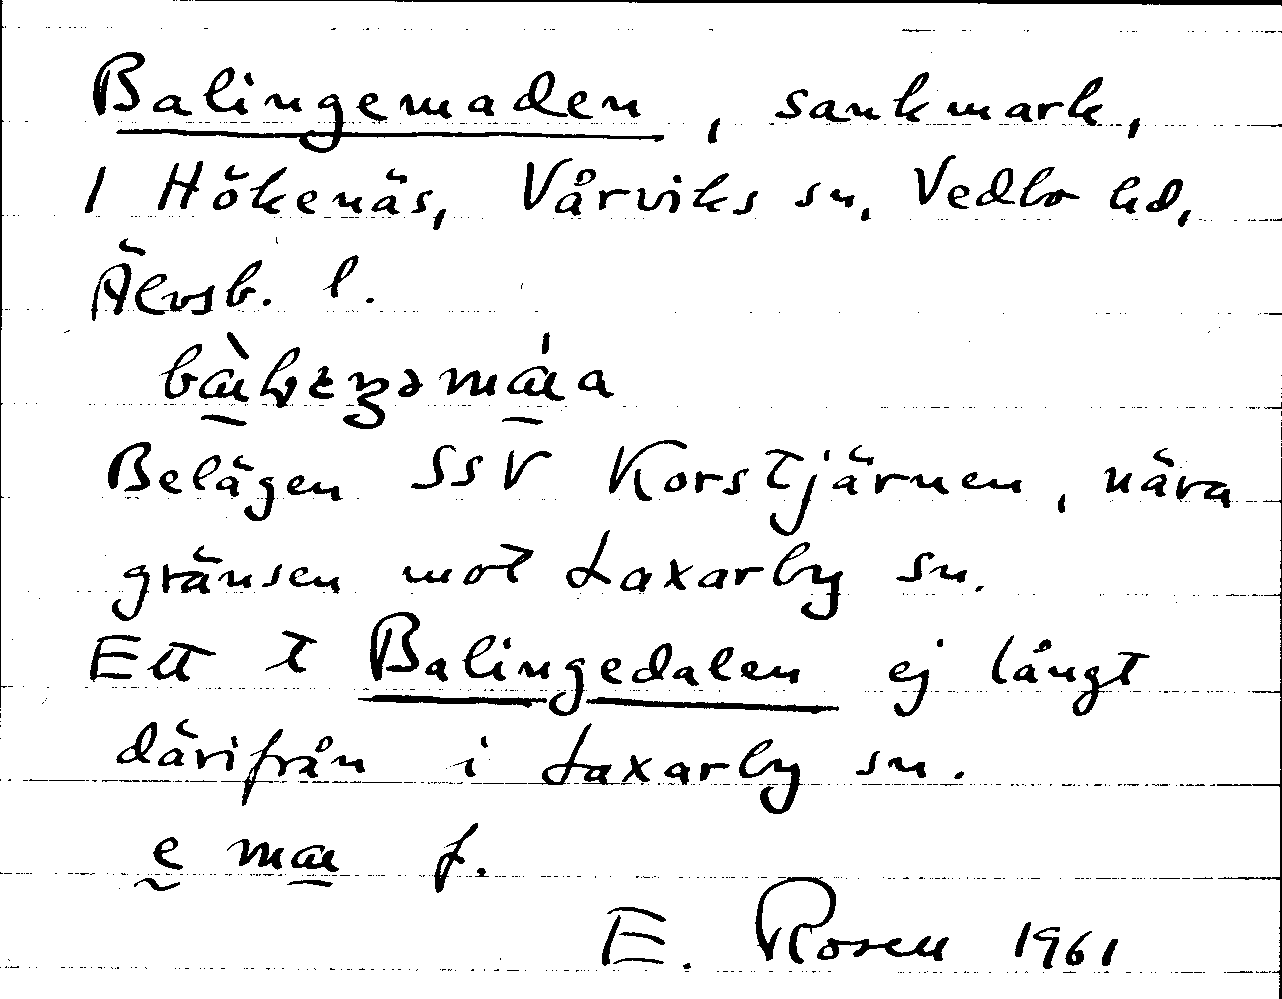 Balingemaden, sankmark,
1 Hökenäs, Vårviks sn, Vedbo hd,
Älvsb. l.
Belägen SSV Korstjärnen, nära
gränsen mot Laxarby sn.
Ett t Balingedalen ej långt
därifrån i Laxarby sn.
e ma f.
E. Rosen 1961